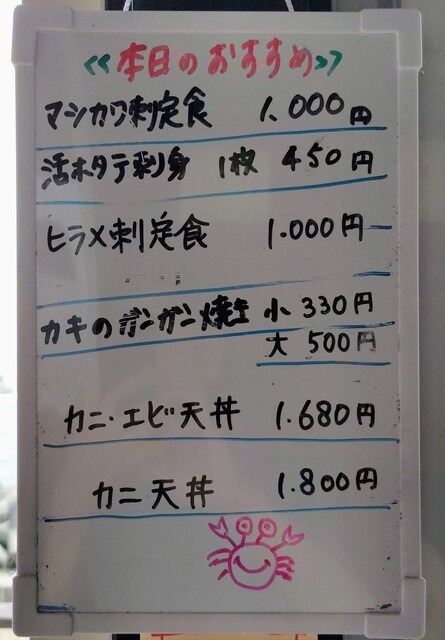 <<本日のおすすめ>>
マツカワ刺定食 1.000円
活ホタテ刺身 1枚 450円
ヒラメ刺定食 1.000円
カキのガンガン焼き 小 330円
大 500円
カニ・エビ天丼 1.680円
カニ天丼 1.800円